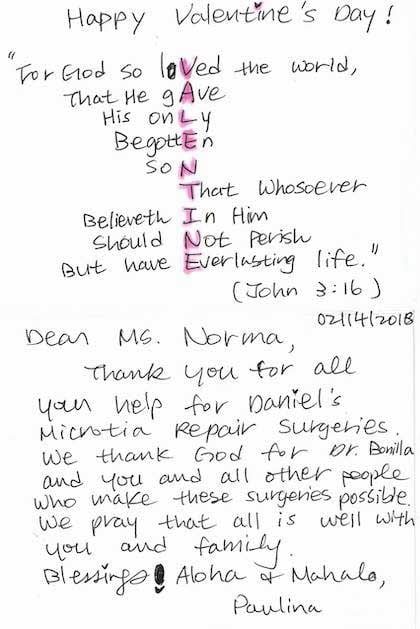 Happy Valentine's Day!
"For God so loVed the world,
That He gAve
His onLy
BegottEn
SoN
That Whosoever
Believeth In Him
Should Not Perish
But have Everlasting life."
(John 3:16)
02/14/2018
Dear Ms. Norma,
Thank you for all
your help for Daniel's
Microtia Repair Surgeries.
We thank God for Dr. Bonilla
and you and all other people
who make these surgeries possible.
We pray that all is well with
you and family.
Blessings! Aloha & Mahalo,
Paulina